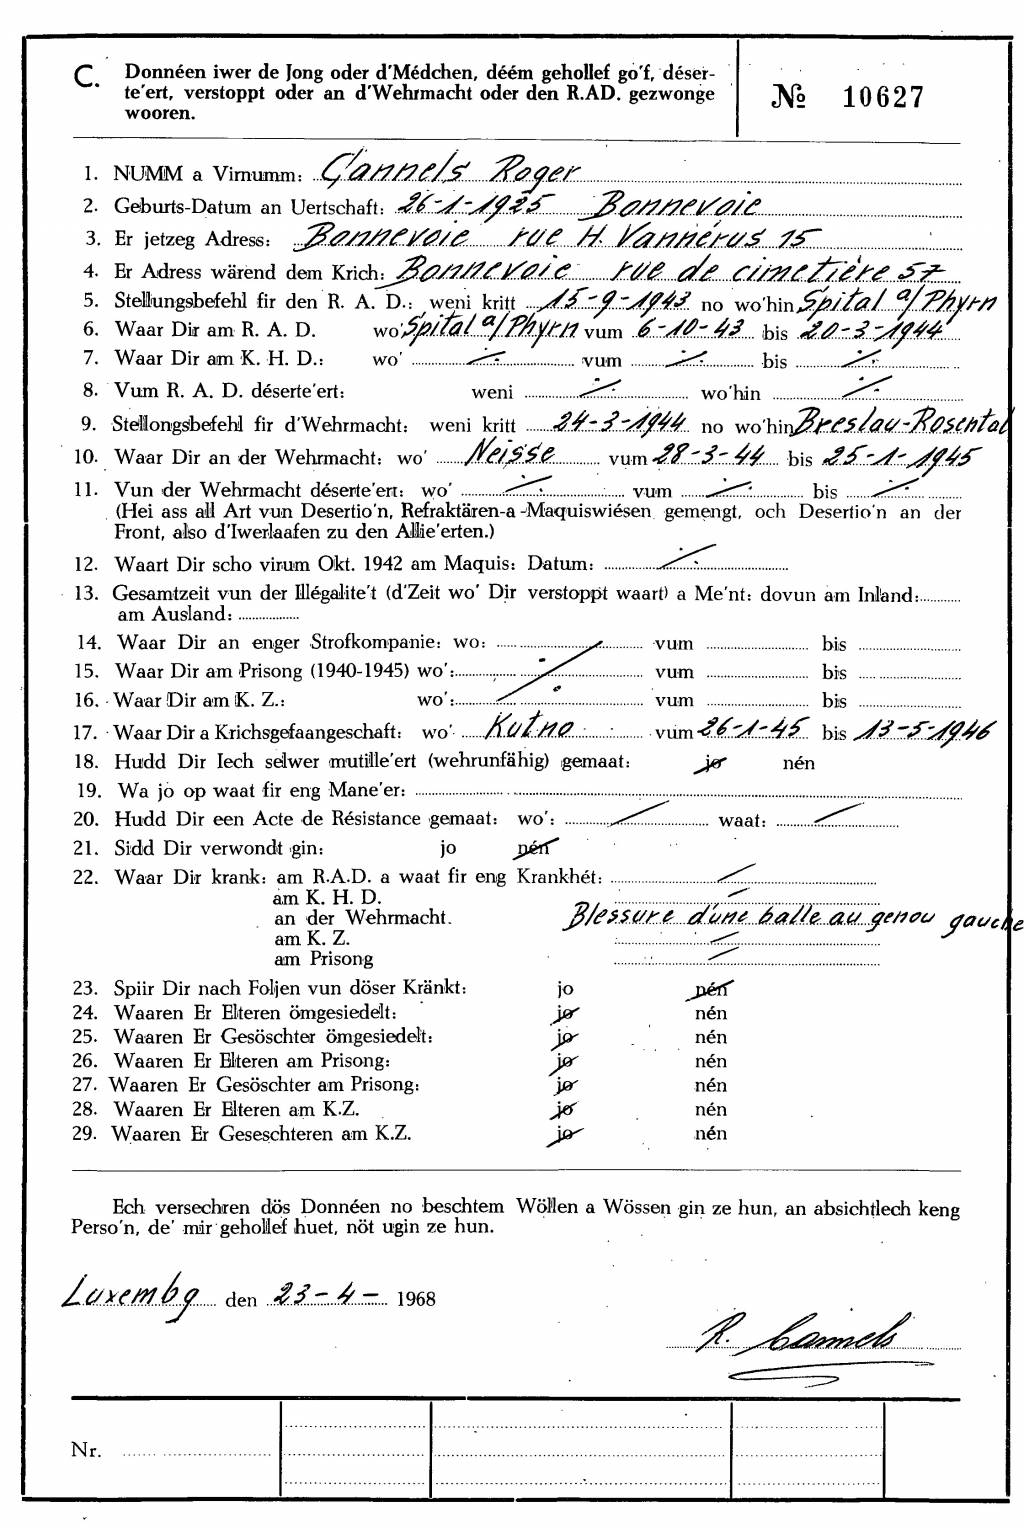 C. Donnéen iwer de Jong oder d'Médchen, déém gehollef go'f, déser-
te'ert, verstoppt oder an d'Wehrmacht oder den R.AD. gezwonge
wooren.
№ 10627
1. NUMM a Virnumm: Cannels Roger
2. Geburts-Datum an Uertschaft: 26-1-1925 Bonnevoie
3. Er jetzeg Adress: Bonnevoie rue H. Vannérus 15
4. Er Adress wärend dem Krich: Bonnevoie rue de cimetière 57
5. Stellungsbefehl fir den R. A. D.: weni kritt 15-9-1943 no wo'hin Spital a/Phyrn
6. Waar Dir am R. A. D. wo' Spital a/Phyrn vum 6-10-43 bis 20-3-1944
7. Waar Dir am K. H. D.: wo' ·/. vum ·/. bis ·/.
8. Vum R. A. D. déserte'ert: weni ·/. wo'hin ·/.
9. Stellongsbefehl fir d'Wehrmacht: weni kritt 24-3-1944 no wo'hin Breslau-Rosental
10. Waar Dir an der Wehrmacht: wo' Neisse vum 28-3-44 bis 25-1-1945
11. Vun der Wehrmacht déserte'ert: wo' ·/. vum ·/. bis ·/.
(Hei ass all Art vun Desertio'n, Refraktären-a-Maquiswiésen gemengt, och Desertio'n an der
Front, also d'Iwerlaafen zu den Allie'erten.)
12. Waart Dir scho virum Okt. 1942 am Maquis: Datum: ·/.
13. Gesamtzeit vun der Illégalite't (d'Zeit wo' Dir verstoppt waart) a Me'nt: dovun am Inland:
am Ausland:
14. Waar Dir an enger Strofkompanie: wo: vum bis
15. Waar Dir am Prisong (1940-1945) wo': ·/. vum bis
16. Waar Dir am K. Z.: wo': /. vum bis
17. Waar Dir a Krichsgefaangeschaft: wo' Kutno vum 26-1-45 bis 13-5-1946
18. Hudd Dir Iech selwer mutille'ert (wehrunfähig) gemaat: jo nén
19. Wa jo op waat fir eng Mane'er:
20. Hudd Dir een Acte de Résistance gemaat: wo': / waat: /
21. Sidd Dir verwondt gin: jo nén
22. Waar Dir krank: am R.A.D. a waat fir eng Krankhét: /
am K. H. D. /
an der Wehrmacht. Blessure d'une balle au genou gauche
am K. Z. /
am Prisong /
23. Spiir Dir nach Foljen vun döser Kränkt: jo nén
24. Waaren Er Elteren ömgesiedelt: jo nén
25. Waaren Er Gesöschter ömgesiedelt: jo nén
26. Waaren Er Elteren am Prisong: jo nén
27. Waaren Er Gesöschter am Prisong: jo nén
28. Waaren Er Elteren am K.Z. jo nén
29. Waaren Er Geseschteren am K.Z. jo nén
Ech versechren dös Donnéen no beschtem Wöllen a Wössen gin ze hun, an absichtlech keng
Perso'n, de' mir gehollef huet, nöt ugin ze hun.
Luxembg den 23-4- 1968
R. Cannels
Nr.